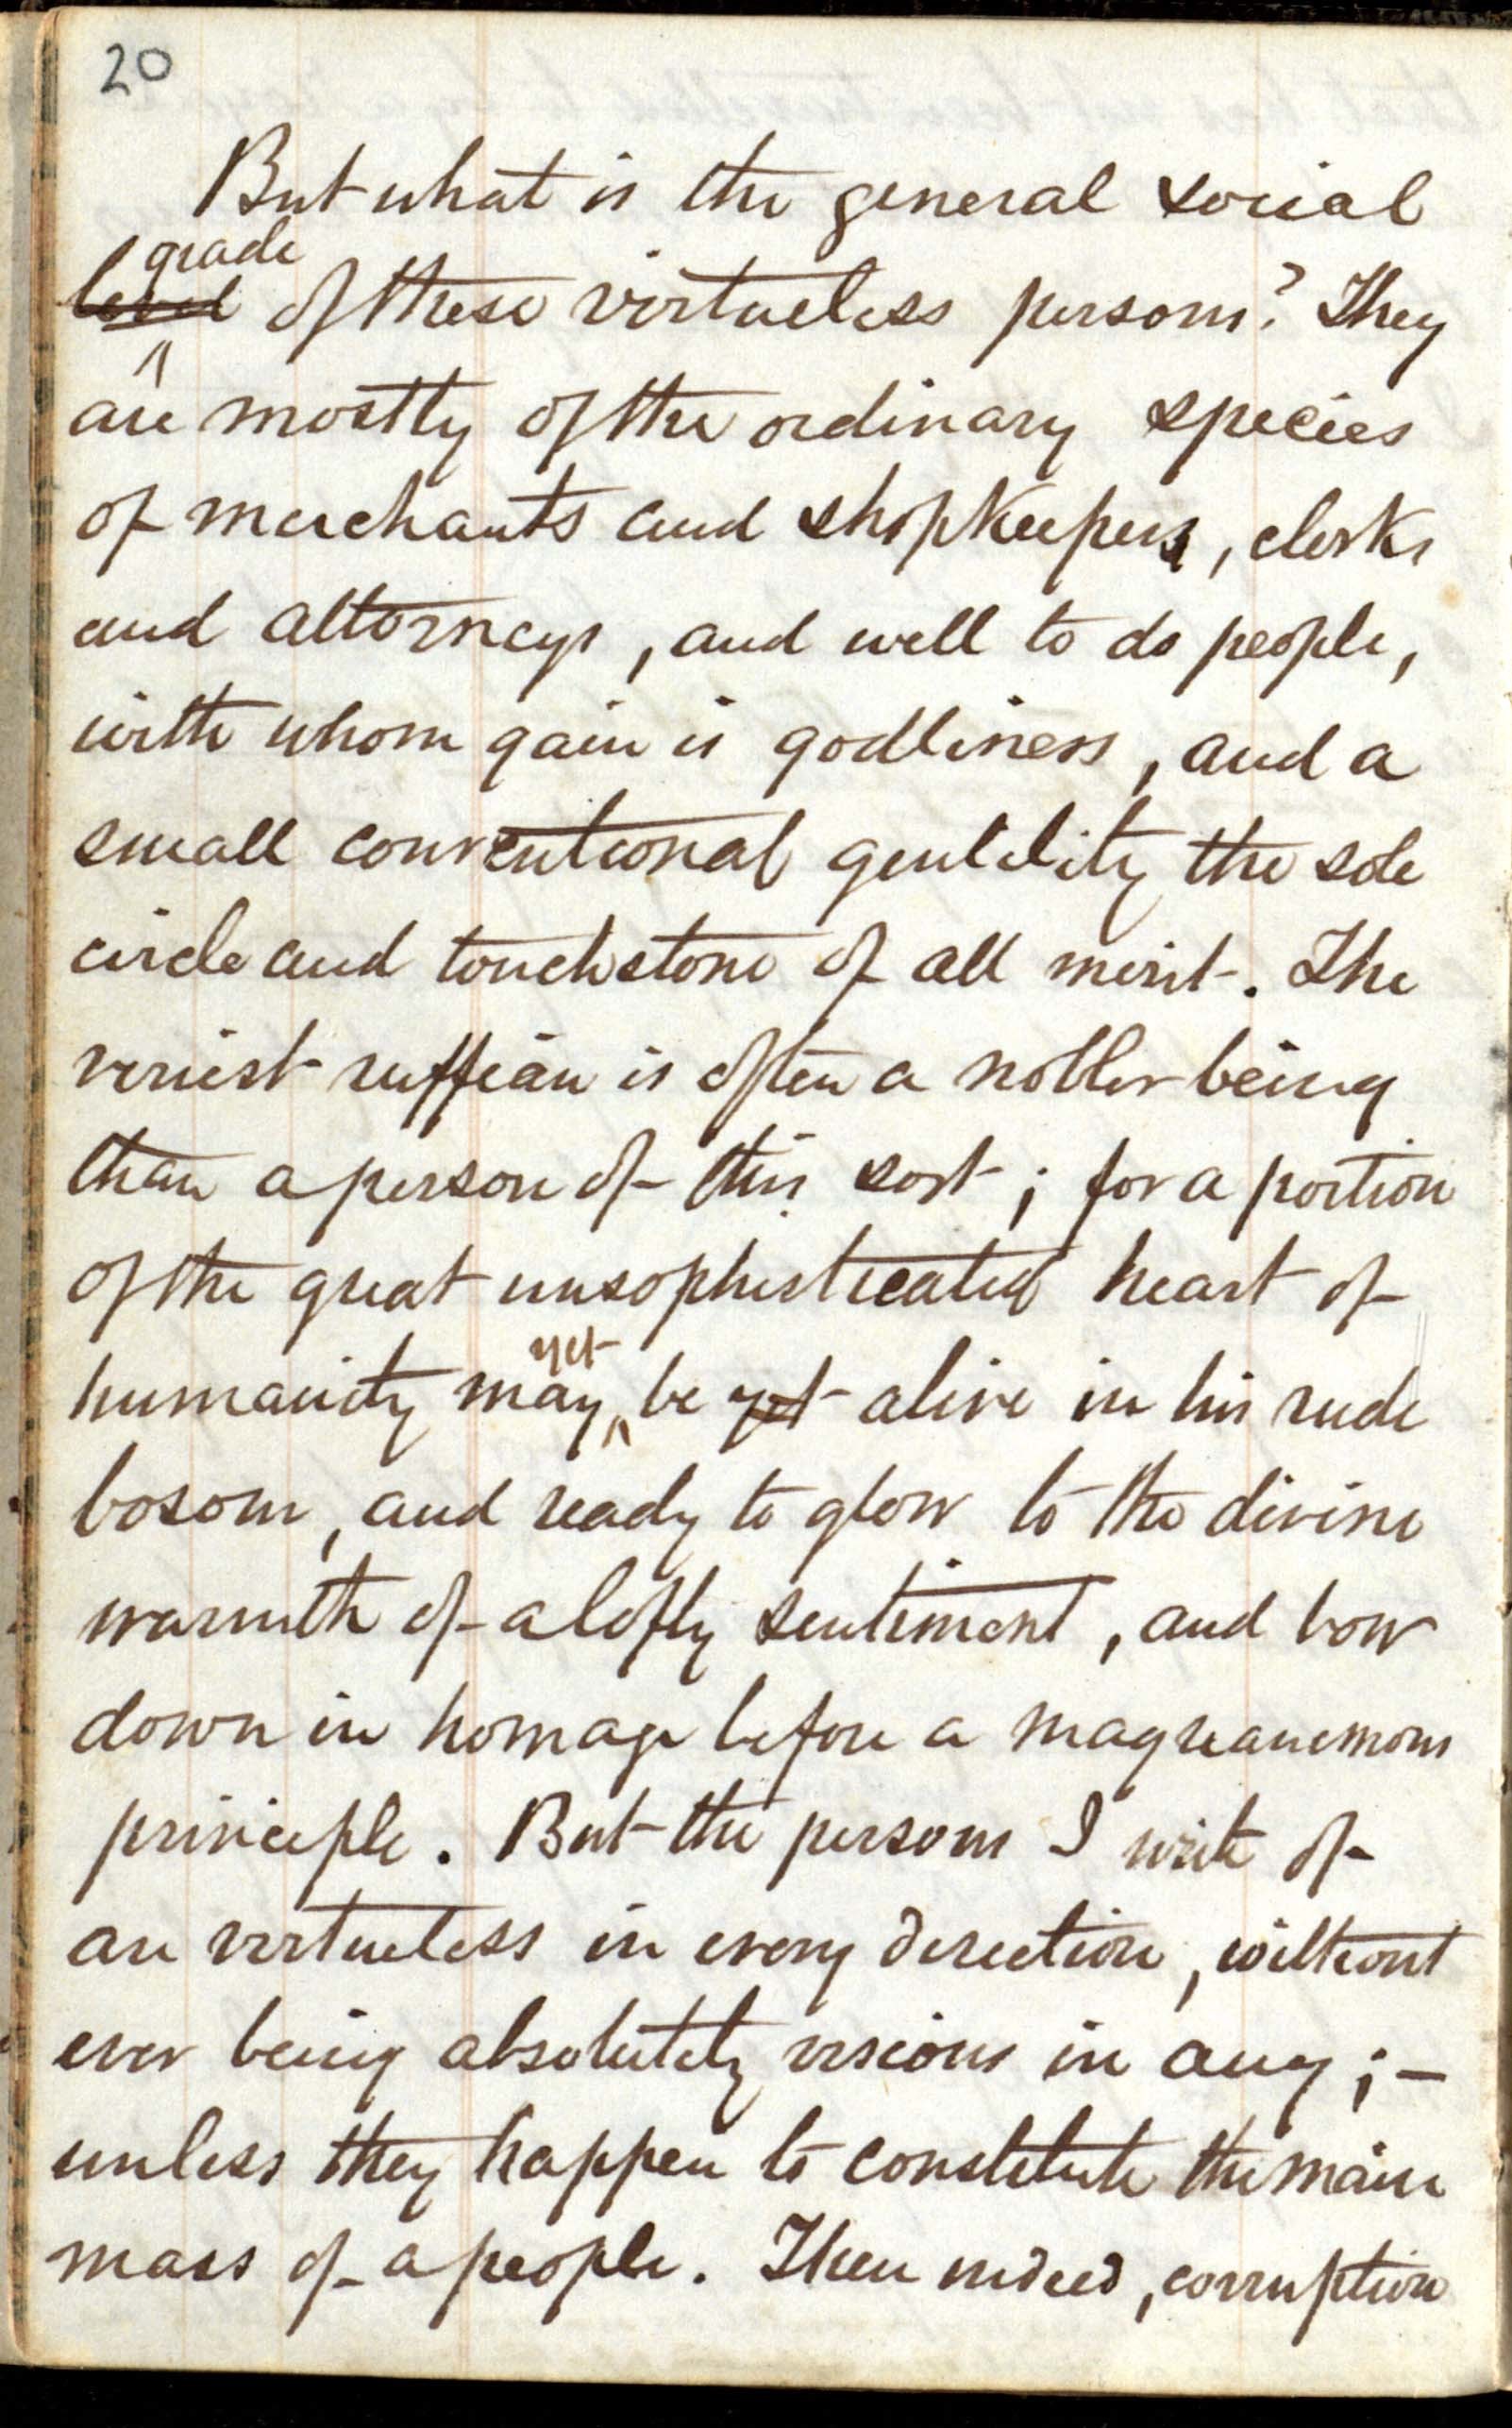 20
But what is the general social
grade
level of these virtueless persons? They
are mostly of the ordinary species
of merchants and shopkeepers, clerks
and attorneys, and well to do people,
with whom gain is godliness, and a
small conventional gentility the sole
circle and touchstone of all merit. The
veriest ruffian is often a nobler being
than a person of this sort; for a portion
of the great unsophisticated heart of
yet
humanity may be yet alive in his rude
bosom, and ready to glow to the divine
warmth of a lofty sentiment, and bow
down in homage before a magnanimous
principle. But the persons I write of
are virtueless in every direction, without
ever being absolutely viscious in any; —
unless they happen to constitute the main
mass of a people. Then indeed, corruption